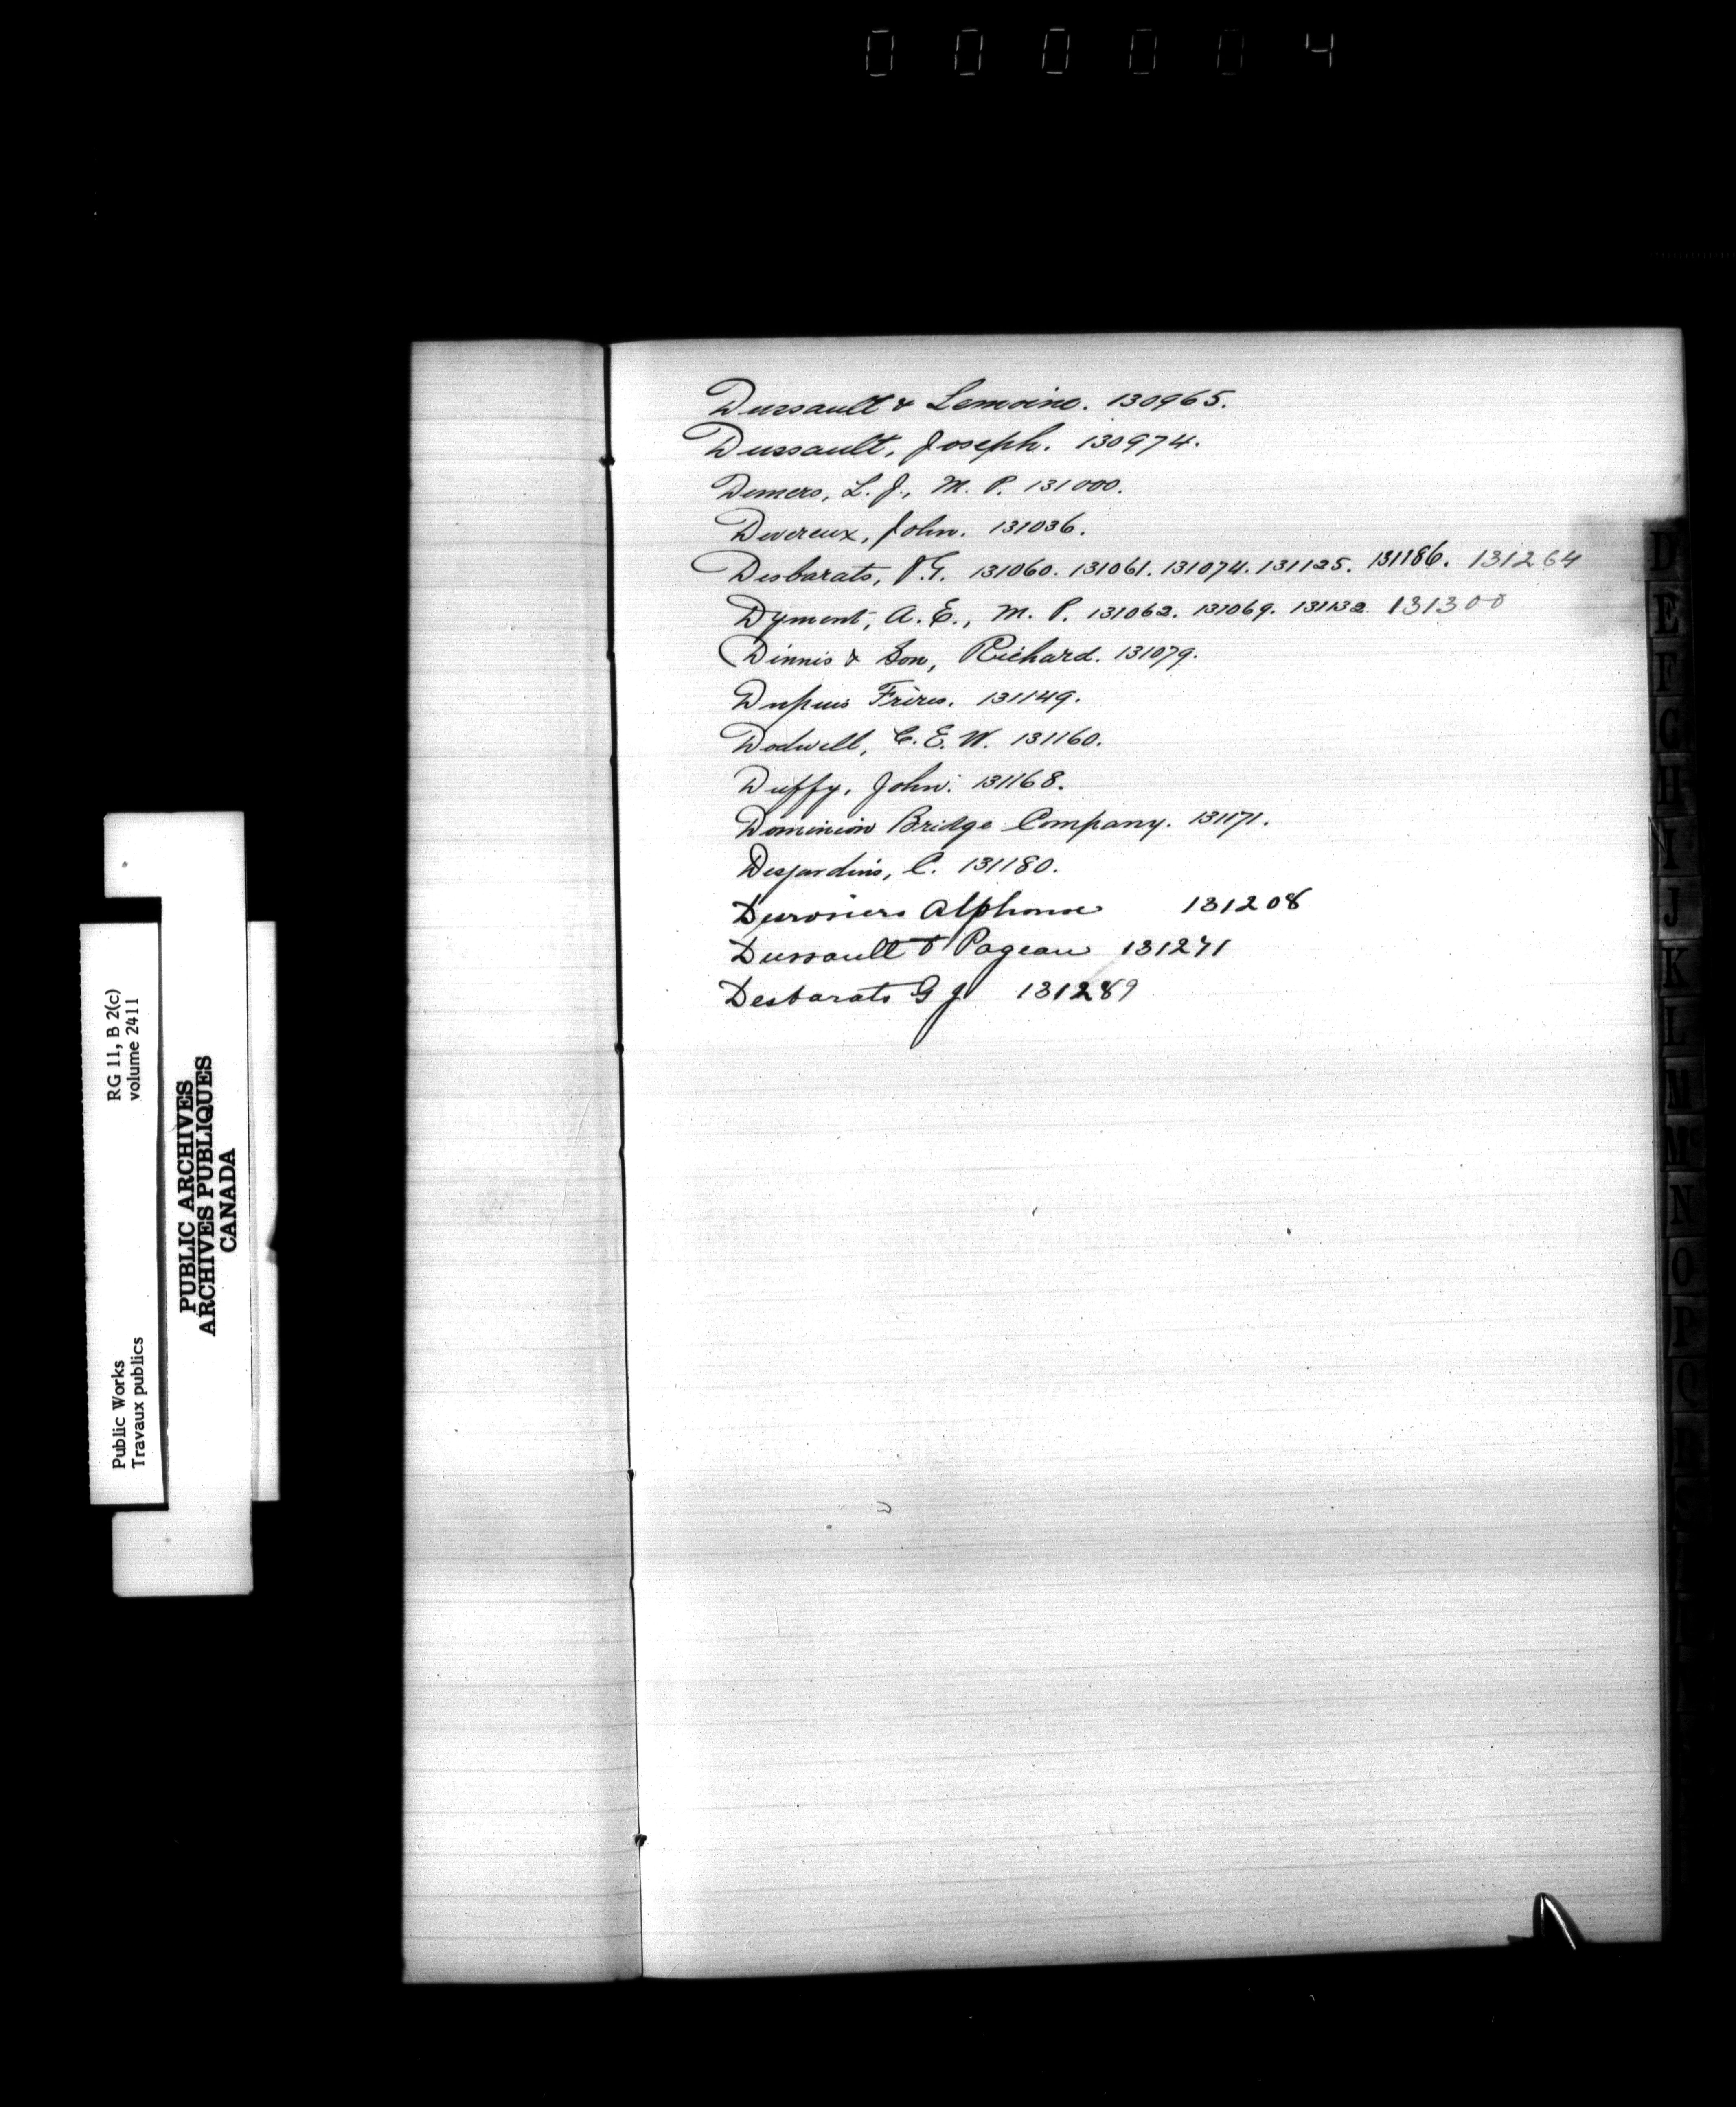 000004
Dussault & Lemoine. 130965.
Dussault, Joseph. 130974.
Demers, L. J., M. P. 131000.
Devereux, John. 131036.
Desbarats, 131060. 131061. 131074. 131125. 131186. 131264
Dyment, A. E., M. P. 131062. 131069. 131132 131300
Dinnis & Son, Richard. 131079.
Dupuis Frères. 131149.
Dodwell, C. E. W. 131160.
Duffy, John. 131168.
Dominion Bridge Company. 131171.
Desjardins, C. 131180.
Alphonse 131208
Dussault & Pageau 131271
Desbarats G J 131289
RG 11, B 2(c)
volume 2411
PUBLIC ARCHIVES
ARCHIVES PUBLIQUES
CANADA
Public Works
Travaux publics
D
E
F
G
H
I
J
K
L
M
N
O
P